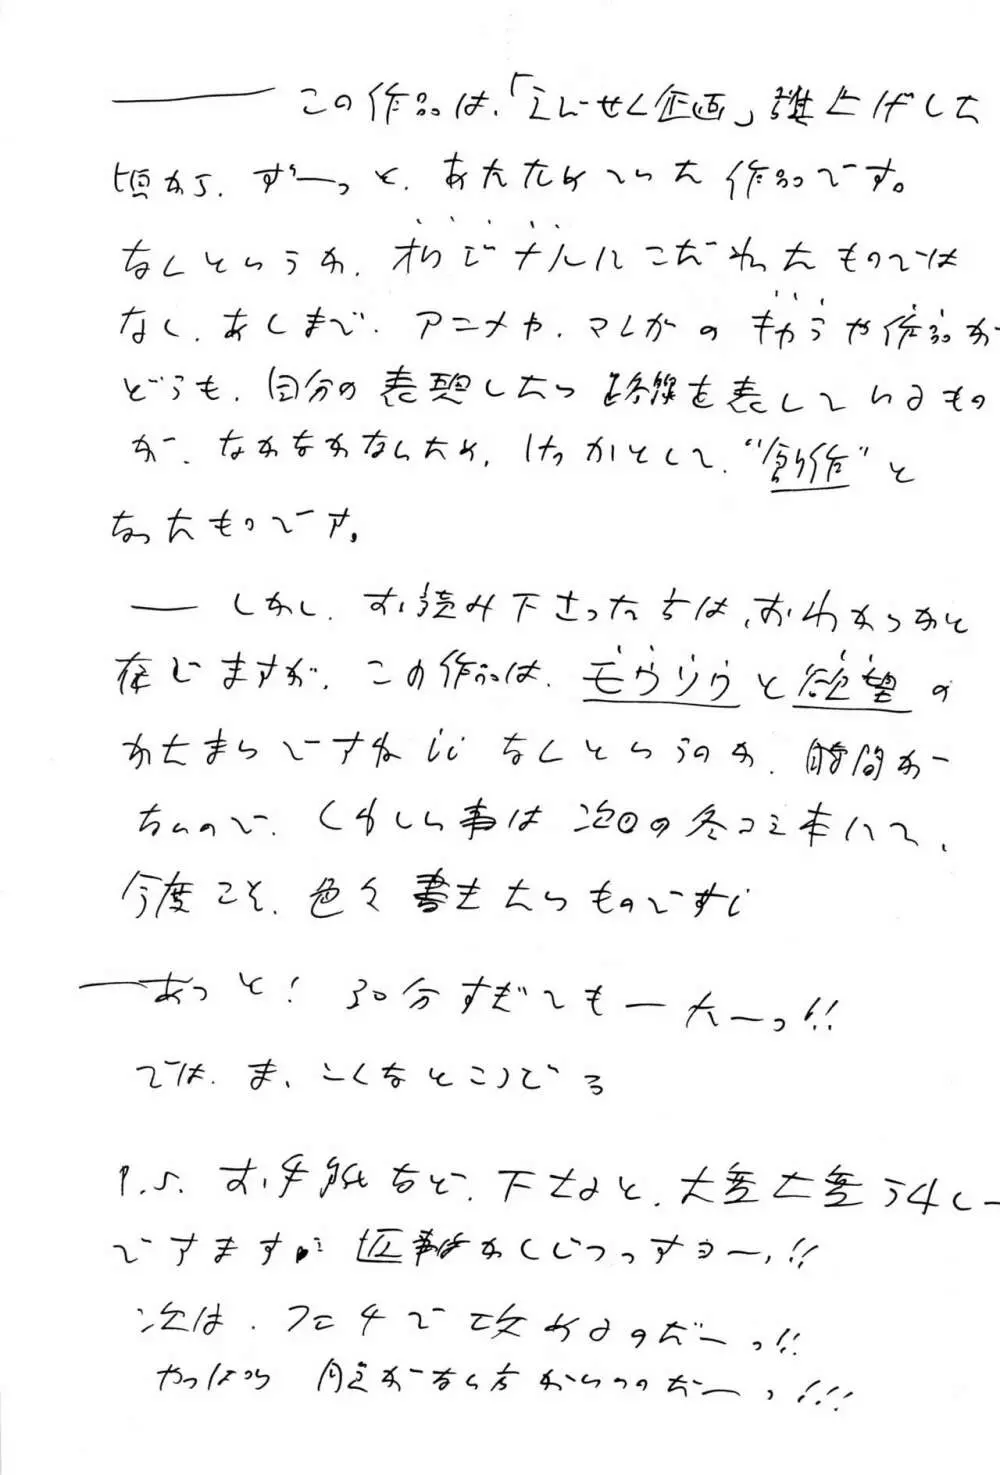 この作品は、「えんせく企画」旗上げした
頃から、ずーっと、あたためていた作品です。
なんというか、オリジナルにこだわったものでは
なく、あくまで、アニメや、マンガのキャラや作品が
どうも、自分の表現したい路線を表しているもの
が、なかなかないため、けっかとして、"創作"と
なったものです。
しかし、お読み下さったらば、おわかりかと
存じますが、この作品は、モウソウと欲望の
かたまりですね!! なんというのか、時間が
ないので、くわしい事は次回の冬コミ本にて、
今度こそ、色々書きたいものです!
あっと! 30分すぎてもーたーっ!!
では、ま、こんなところで
P.S. お手紙など、下さると、大変大変うれし
でーます。 返事はかくじつっすヨー!!
次は、フェチで攻めるのだーっ!!
やっぱり 毛がない方がいいのだーっ!!!